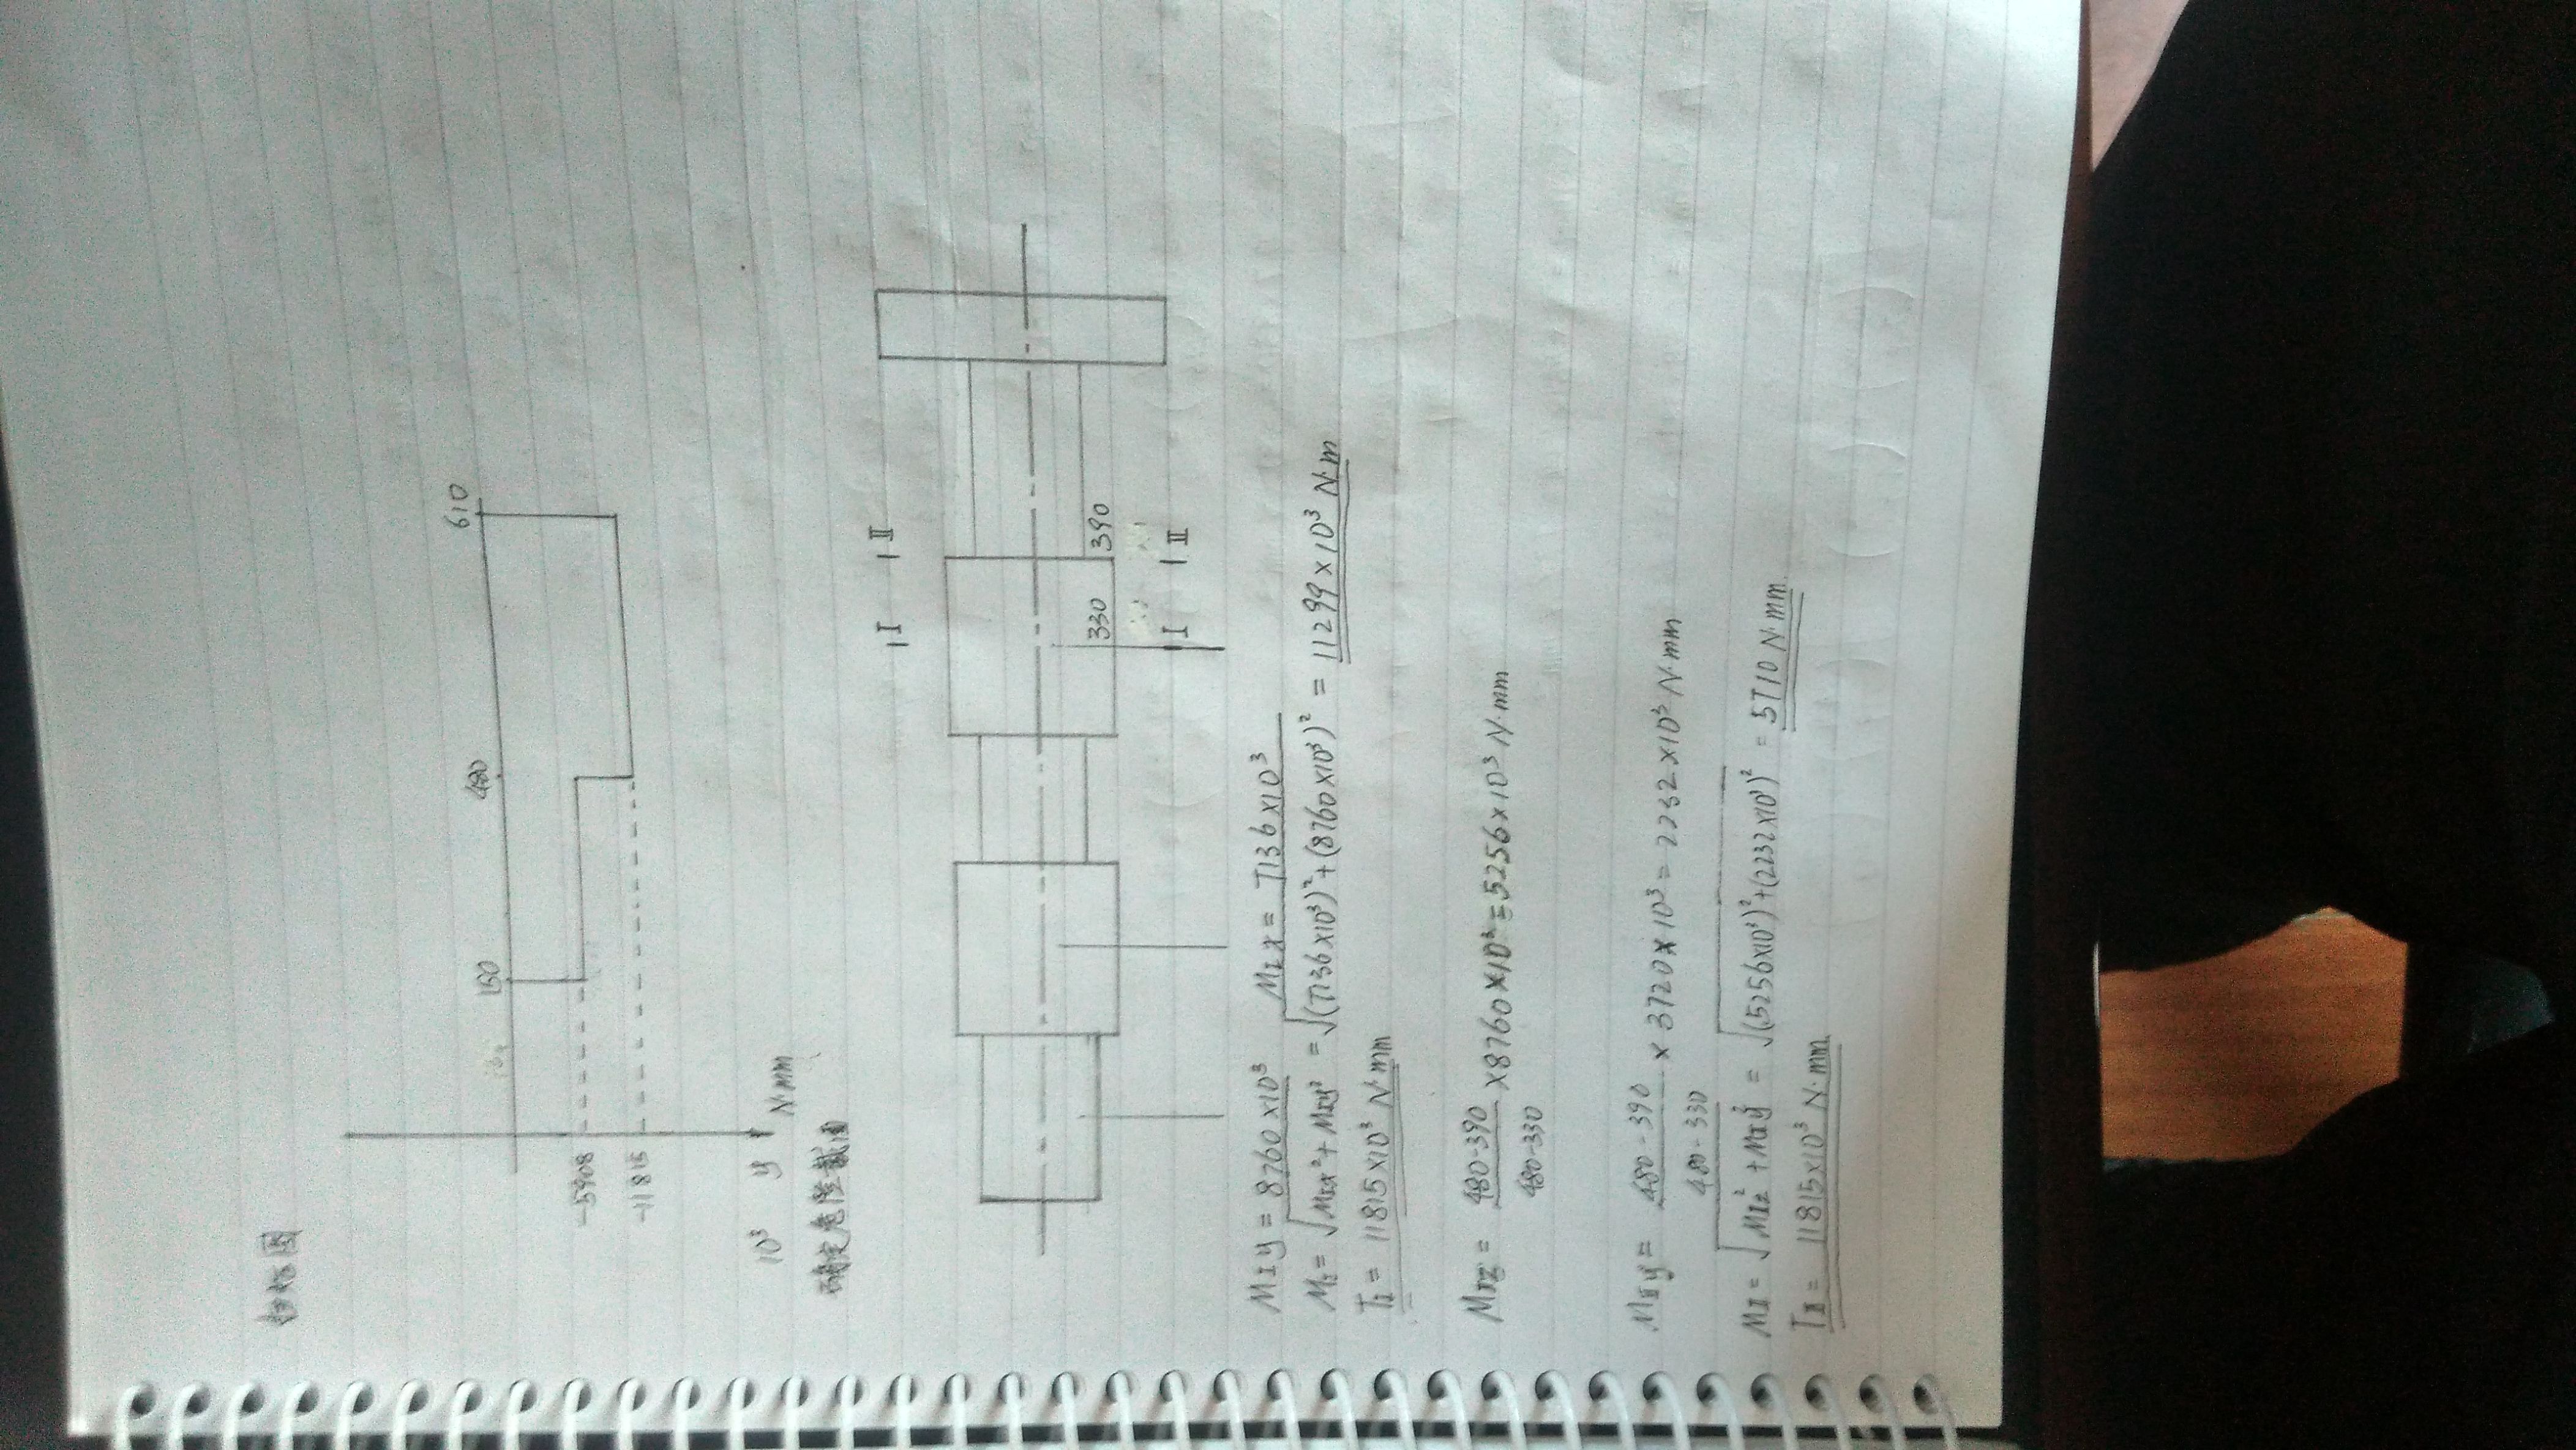 扭矩图
150 480 610
-5908
-11815
10³ y N·mm
确定危险截面
I II
330 390
I II
MIy = 8760×10³ MIx = 7136×10³
MI = √MIx²+MIy² = √(7136×10³)²+(8760×10³)² = 11299×10³ N·m
TI = 11815×10³ N·mm
MIIz = 480-390/480-330 ×8760×10³=5256×10³ N·mm
MIIy = 480-390/480-330 × 3720×10³=2232×10³ N·mm
MII = √MIIz²+MIIy² = √(5256×10³)²+(2232×10³)² = 5710 N·mm
TII = 11815×10³ N·mm